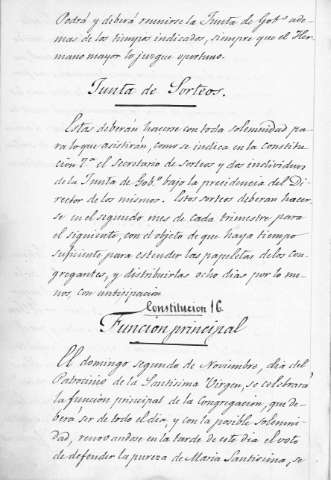 Podrá y deberá reunirse la Junta de Gob.º ade-
mas de los tiempos indicados, siempre que el Her-
mano mayor lo juzgue oportuno.
Junta de Sorteos.
Estas deberán hacerse con toda solemnidad pa-
ra lo que asistirán, como se indica en la constitu-
cion 7.ª el Secretario de sorteos y dos individuos
de la Junta de Gob.º bajo la presidencia del Di-
rector de los mismos. Estos sorteos deberan hacer-
se en el segundo mes de cada trimestre para
el siguiente, con el objeto de que haya tiempo
suficiente para estender las papeletas de los con-
gregantes, y distribuirlas ocho dias por lo me-
nos, con anticipacion
Constitucion 16.
Funcion principal
El domingo segundo de Noviembre, dia del
Patrocinio de la Santisima Virgen, se celebrará
la funcion principal de la Congregacion, que de-
berá ser de todo el dia, y con la posible solemni-
dad, renovandose en la tarde de este dia el voto
de defender la pureza de Maria Santisima, se